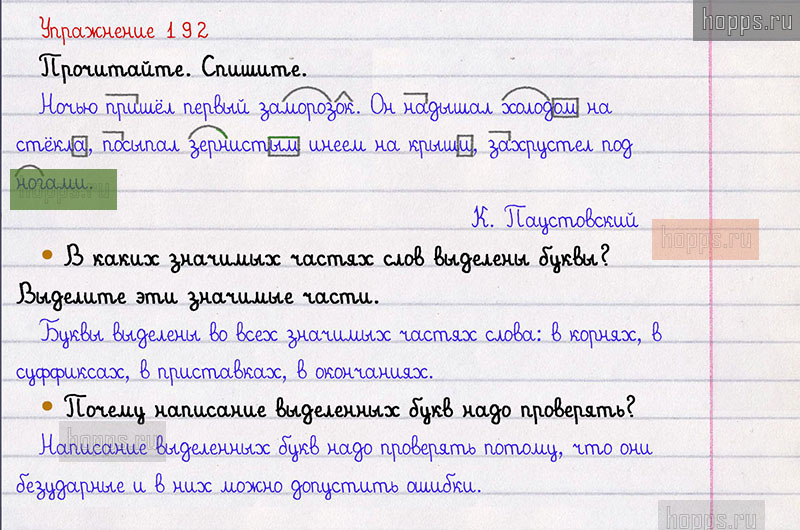 hopps.ru
Упражнение 192
Прочитайте. Спишите.
Ночью пришёл первый заморозок. Он надышал холодом на
стёкла, посыпал зернистым инеем на крыши, захрустел под
ногами.
hopps.ru
К. Паустовский
hopps.ru
• В каких значимых частях слов выделены буквы?
Выделите эти значимые части.
Буквы выделены во всех значимых частях слова: в корнях, в
суффиксах, в приставках, в окончаниях.
• Почему написание выделенных букв надо проверять?
hopps.ru
Написание выделенных букв надо проверять потому, что они
безударные и в них можно допустить ошибки.
hopps.ru